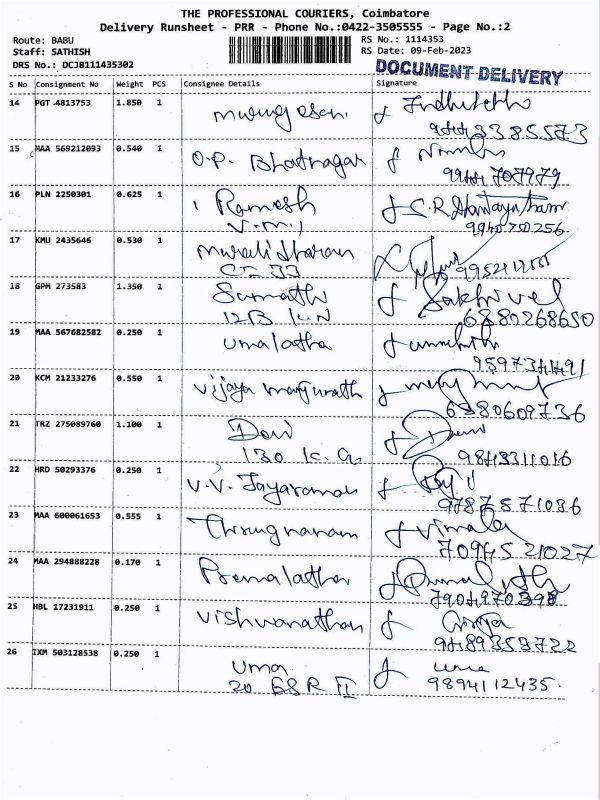 THE PROFESSIONAL COURIERS, Coimbatore
Delivery Runsheet - PRR - Phone No.:0422-3505555 - Page No.:2
Route: BABU RS No.: 1114353
Staff: SATHISH RS Date: 09-Feb-2023
DRS No.: DCJB111435302 DOCUMENT DELIVERY
S No Consignment No Weight PCS Consignee Details Signature
14 PGT 4813753 1.850 1 Murugesan
15 MAA 569212093 0.540 1 O.P. Bhatnagar
16 PLN 2250301 0.625 1 Ramesh
V.M.)
17 KMU 2435646 0.530 1 Muralidharan
18 GPM 273583 1.350 1 Sumathi Sakhivel
12B K.N 6380268650
19 MAA 567682582 0.250 1 Umalatha
20 KCM 21233276 0.550 1 Vijaya Manjunath
6380609736
21 TRZ 275089760 1.100 1 Devi
130 K.G 9843311016
22 HRD 50293376 0.250 1 V.V. Jayaraman
9787571036
23 MAA 600061653 0.555 1 Thirugnanam Vimala
7094521027
24 MAA 294888228 0.170 1 Premalatha
7904970398
25 HBL 17231911 0.250 1 Vishwanathan Girija
9489353722
26 IXM 503128538 0.250 1 Uma uma
20 ESR II 9894112435.